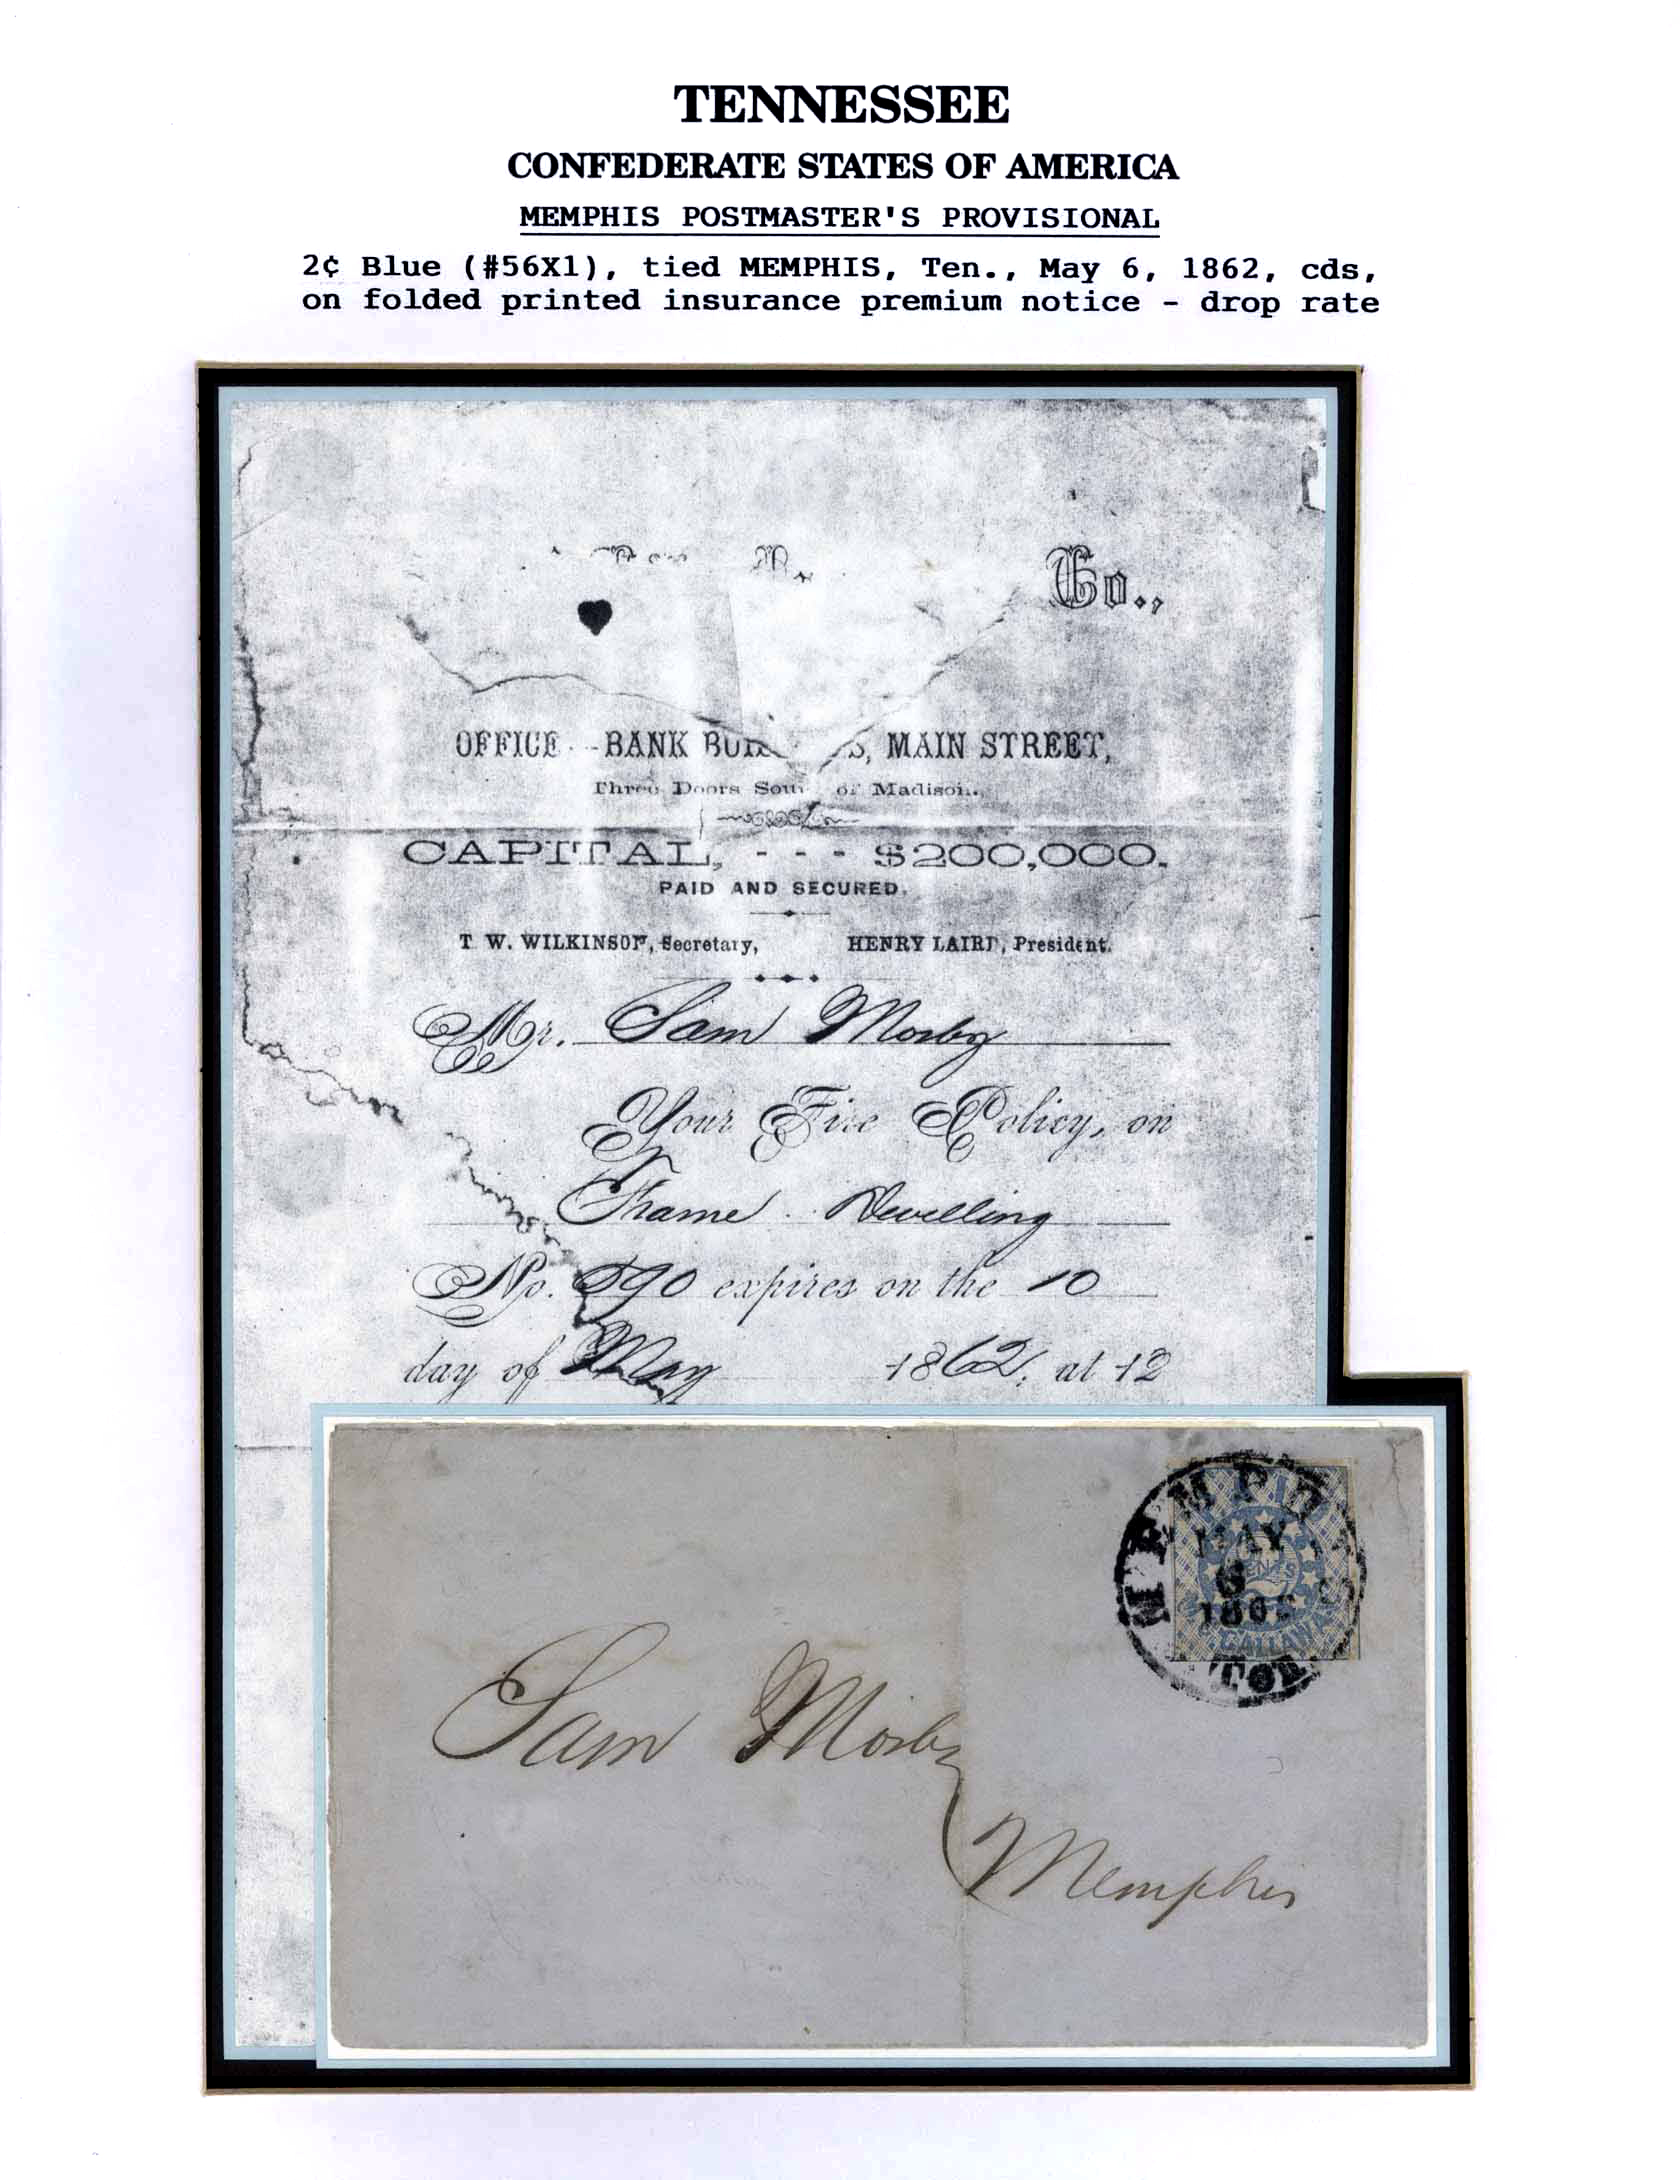 TENNESSEE
CONFEDERATE STATES OF AMERICA
MEMPHIS POSTMASTER'S PROVISIONAL
2¢ Blue (#56X1), tied MEMPHIS, Ten., May 6, 1862, cds,
on folded printed insurance premium notice - drop rate
Co.,
OFFICE - BANK MAIN STREET,
Three Doors of Madison.
CAPITAL, - - - $200,000.
PAID AND SECURED.
T. W. WILKINSON, Secretary, HENRY LAIRD, President.
Mr. Sam Mosby
Your Fire Policy, on
Frame Dwelling
No. 590 expires on the 10
day of May 1862, at 12
MEMPHIS
PAID
MAY
6
CENTS
1862
CALLAWAY
TEN.
Sam Mosby
Memphis